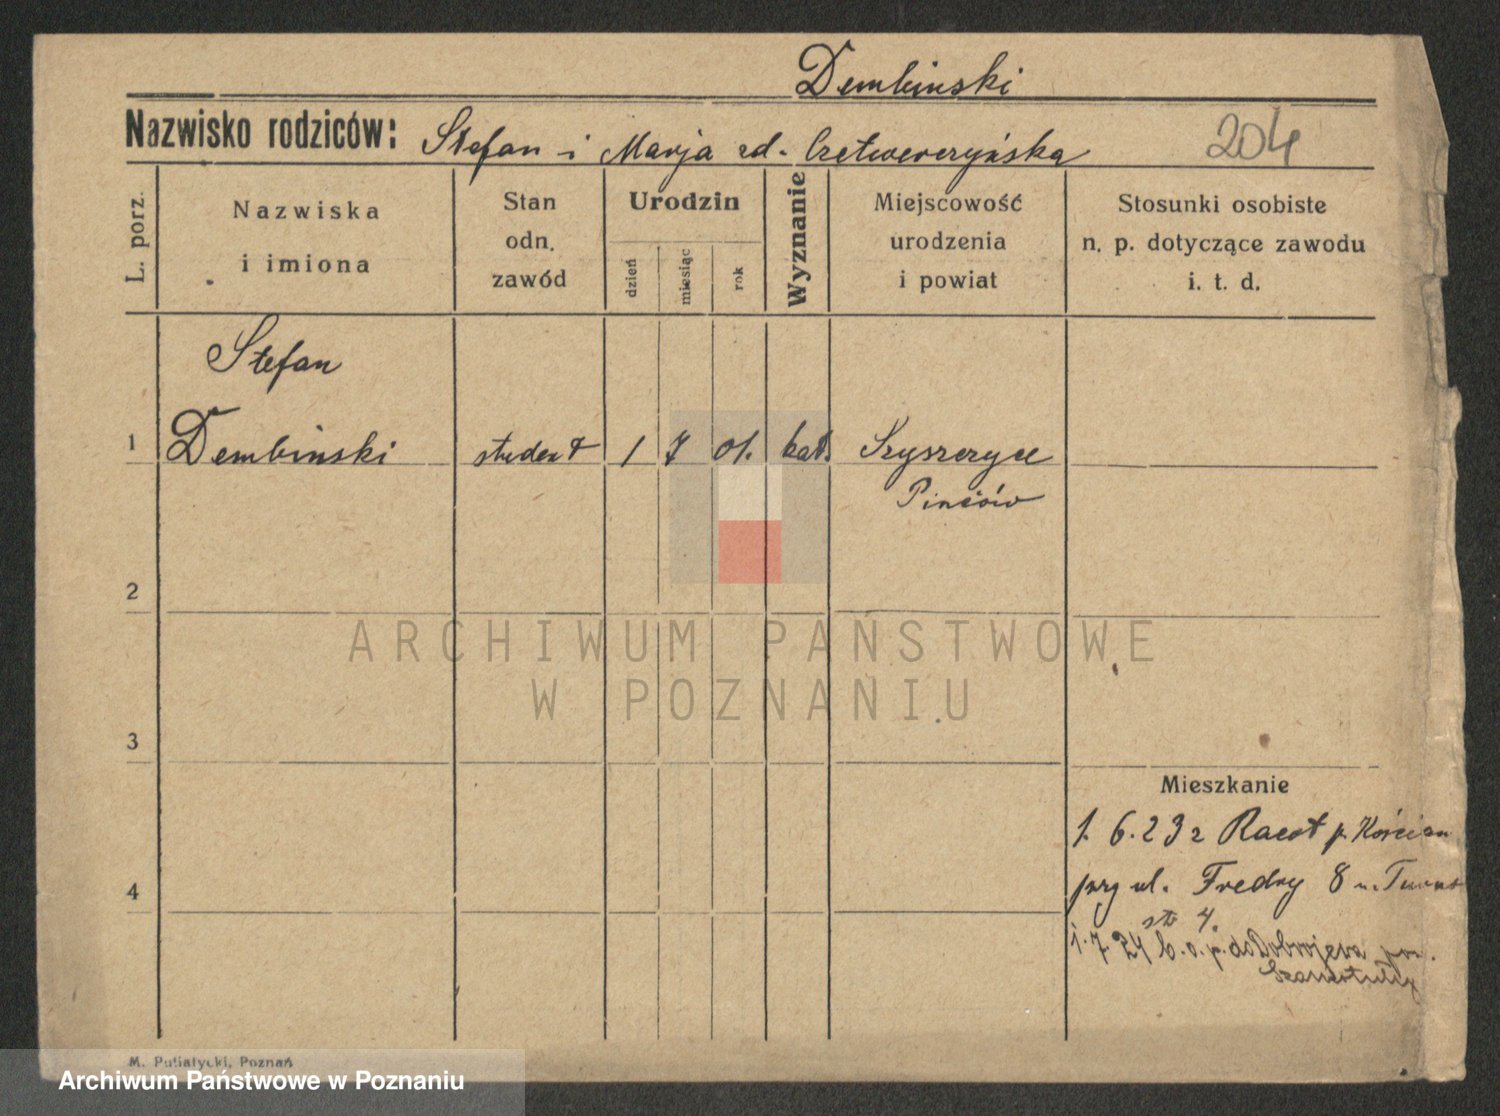 Dembinski
Nazwisko rodziców: Stefan i Marja zd. Czetwerzyńska 204
L. porz.
Nazwiska
i imiona
Stan
odn.
zawód
Urodzin
dzień
miesiąc
rok
Wyznanie
Miejscowość
urodzenia
i powiat
Stosunki osobiste
n. p. dotyczące zawodu
i. t. d.
Stefan
1 Dembiński student 1 7 01. kat. Szyszczyce
Pinczów
2
ARCHIWUM PAŃSTWOWE
W POZNANIU
3
Mieszkanie
1. 6. 23 z Racot p. Kościan
przy ul. Fredry 8 u.
4
str 4.
1. 7. 24 b. o. p. do Dobrojewa pow.
Szamotuły
M. Putiatycki, Poznań
Archiwum Państwowe w Poznaniu